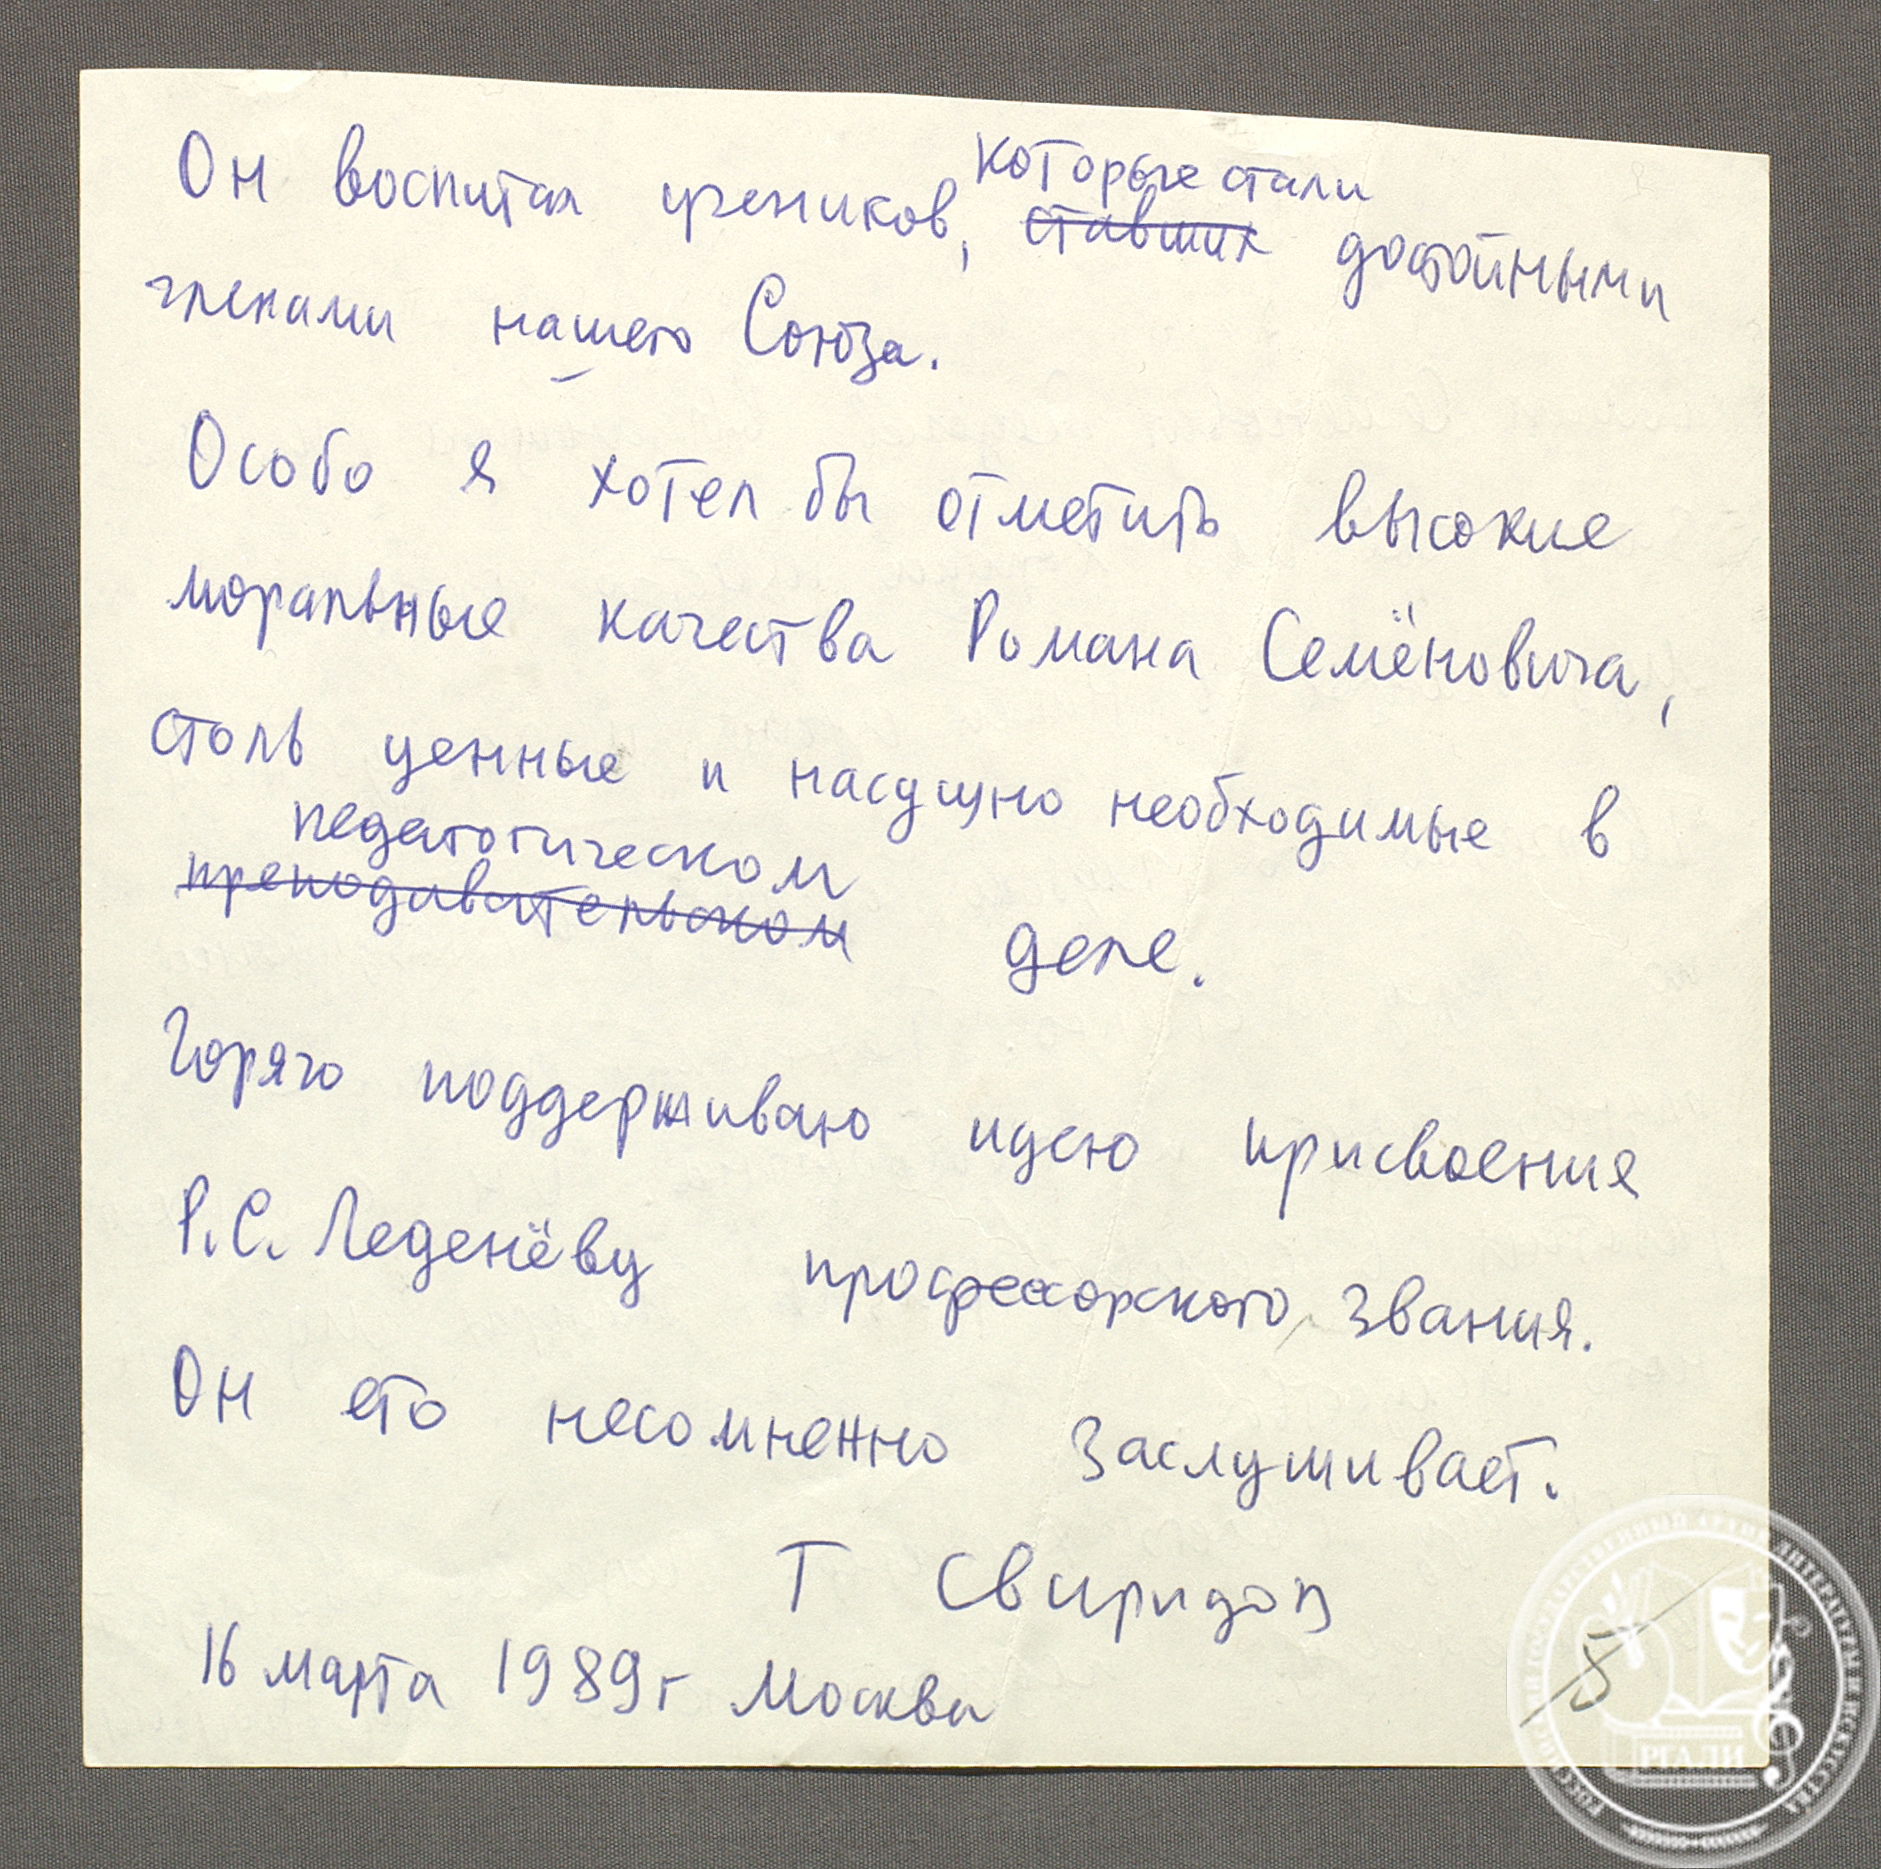 которые стали
Он воспитал учеников, ставших достойными
членами нашего Союза.
Особо я хотел бы отметить высокие
моральные качества Романа Семёновича,
столь ценные и насущно необходимые в
педагогическом
преподавательском деле.
Горячо поддерживаю идею присвоения
Р.С. Леденёву профессорского звания.
Он ето несомненно заслуживает.
Г Свиридов
16 марта 1989 г Москва
5
РГАЛИ
РОССИЙСКИЙ ГОСУДАРСТВЕННЫЙ АРХИВ ЛИТЕРАТУРЫ И ИСКУССТВА